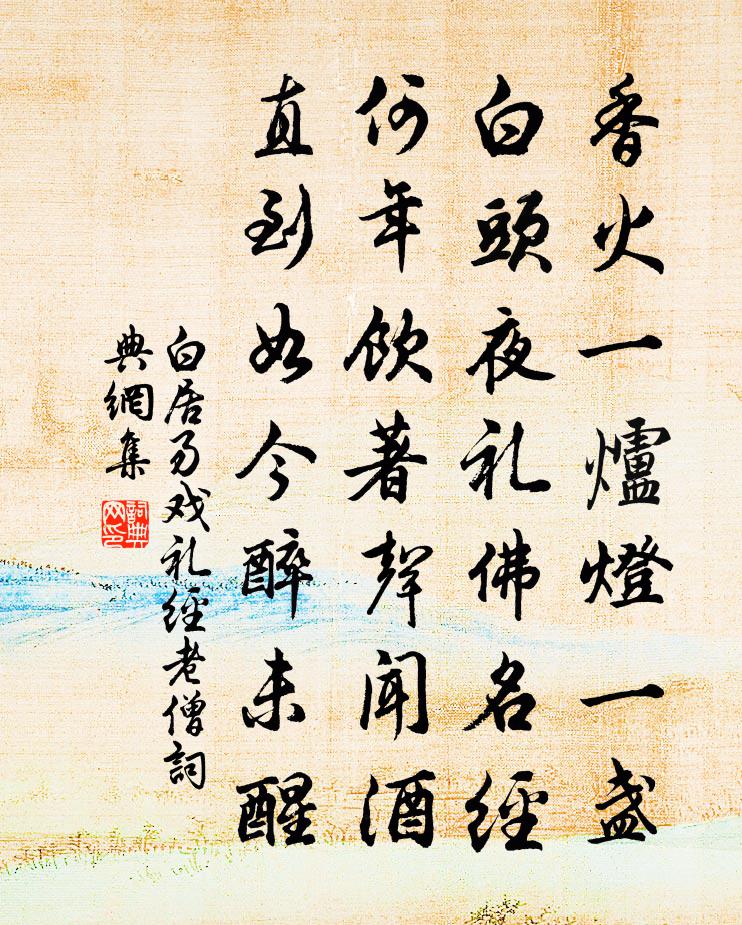 香火一爐燈一盏
白頭夜礼佛名經
何年飲著聲聞酒
直到如今醉未醒
白居易戏礼經老僧詞
典網集
詞典
网印